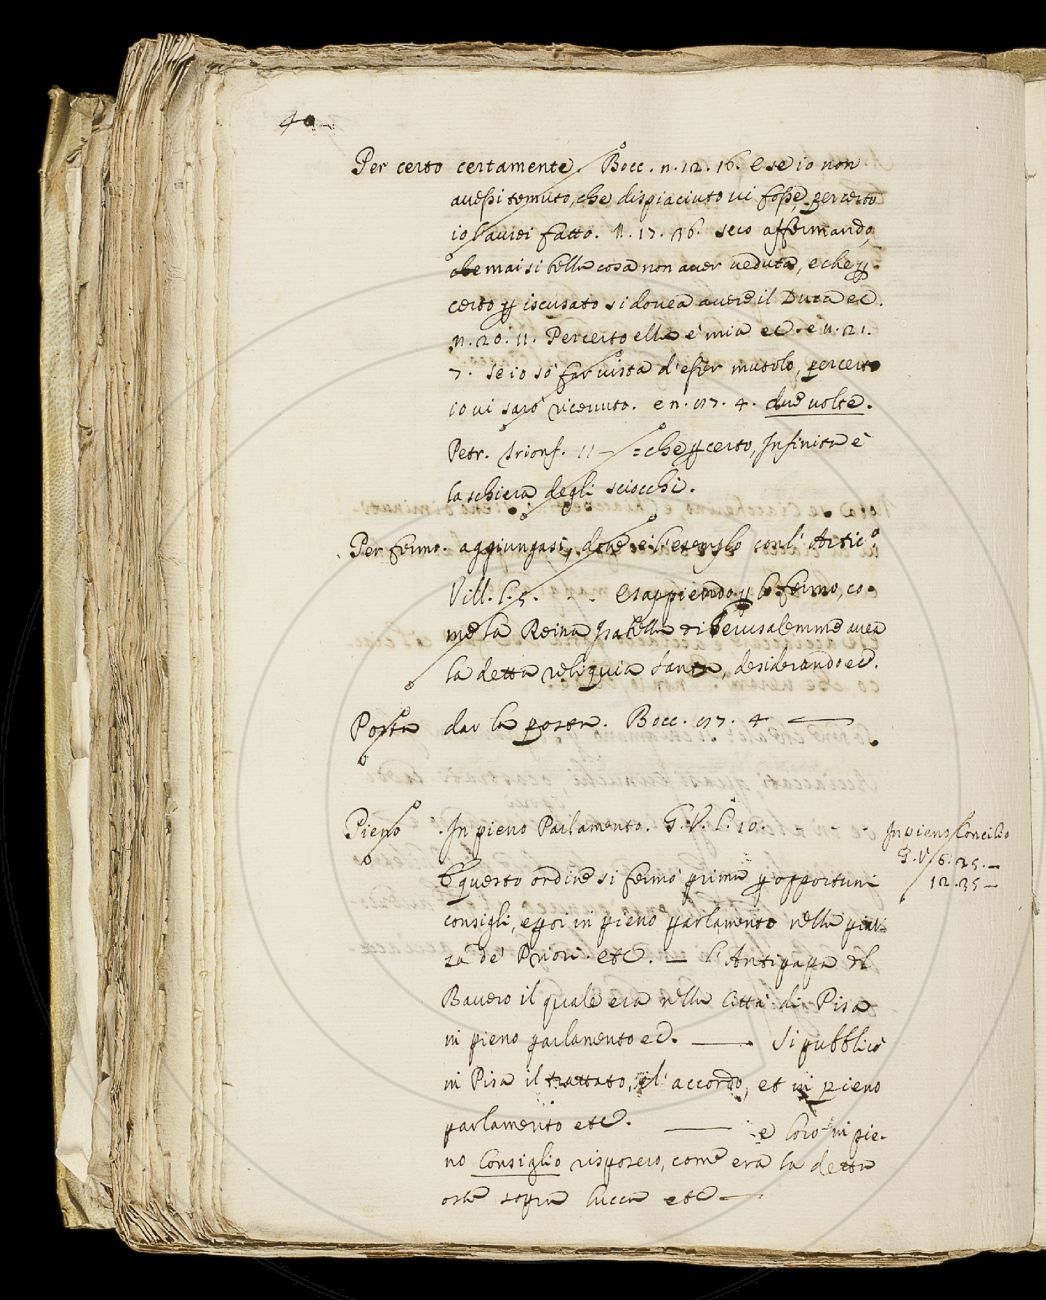 40
Per certo certamente. Bocc. n. 12. 16. e se io non
avessi temuto, che dispiaciuto vi fosse, per certo
io l'avrei fatto. N. 17. 36. seco affermando,
che mai si bella cosa non aver veduta, e che ꝑ
certo ꝑ iscusato si dovea avere il Duca ec.
n. 20. 11. Per certo ella è mia ec. e n. 21.
7. se io so far vista d'esser mutolo, per certo
io vi sarò ricevuto. e n. 77. 4. due volte.
Petr. Trionf. 11 = che ꝑ certo, Infinita è
la schiera degli sciocchi.
Per fermo. aggiungasi, l'esemplo coll' Artic.º
Vill. l. 5. . . E sappiendo ꝑ lo fermo, co-
me la Reina Isabella di Ierusalemme avea
la detta reliquia santa, desiderando ec.
Posta dar la posta. Bocc. 77. 4
Pieno In pieno Parlamento. G. V. l. 10.
In pieno Concilio
G. V. 6. 25.
12. 35
E questo ordine si fermò prima ꝑ opportuni
consigli, e poi in pieno parlamento nella piaz-
za de' Priori etc. — l'Antipapa del
Bavero il quale era nella Città di Pisa
in pieno parlamento ec. — Si pubblicò
in Pisa il trattato, el'accordo, et in pieno
parlamento etc. — e loro in pie-
no Consiglio risposero, come era la detta
oste sopra Lucca etc —